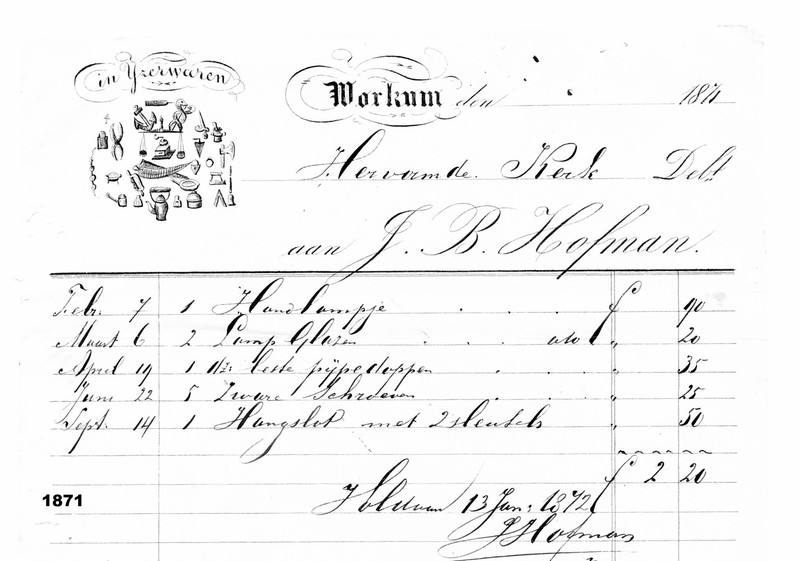 in Yzerwaren
Workum den 1871
Hervormde Kerk Debt
aan J. B. Hofman.
Febr. 7 1 Handlampje f „ 90
Maart 6 2 Lamp Glazen a 10 „ 20
April 19 1 dz: beste pijpedoppen „ 35
Juni 22 5 Zware Schroeven „ 25
Sept. 14 1 Hangslot met 2 sleutels „ 50
f 2 20
1871
Voldaan 13 Jan: 1872
JBHofman